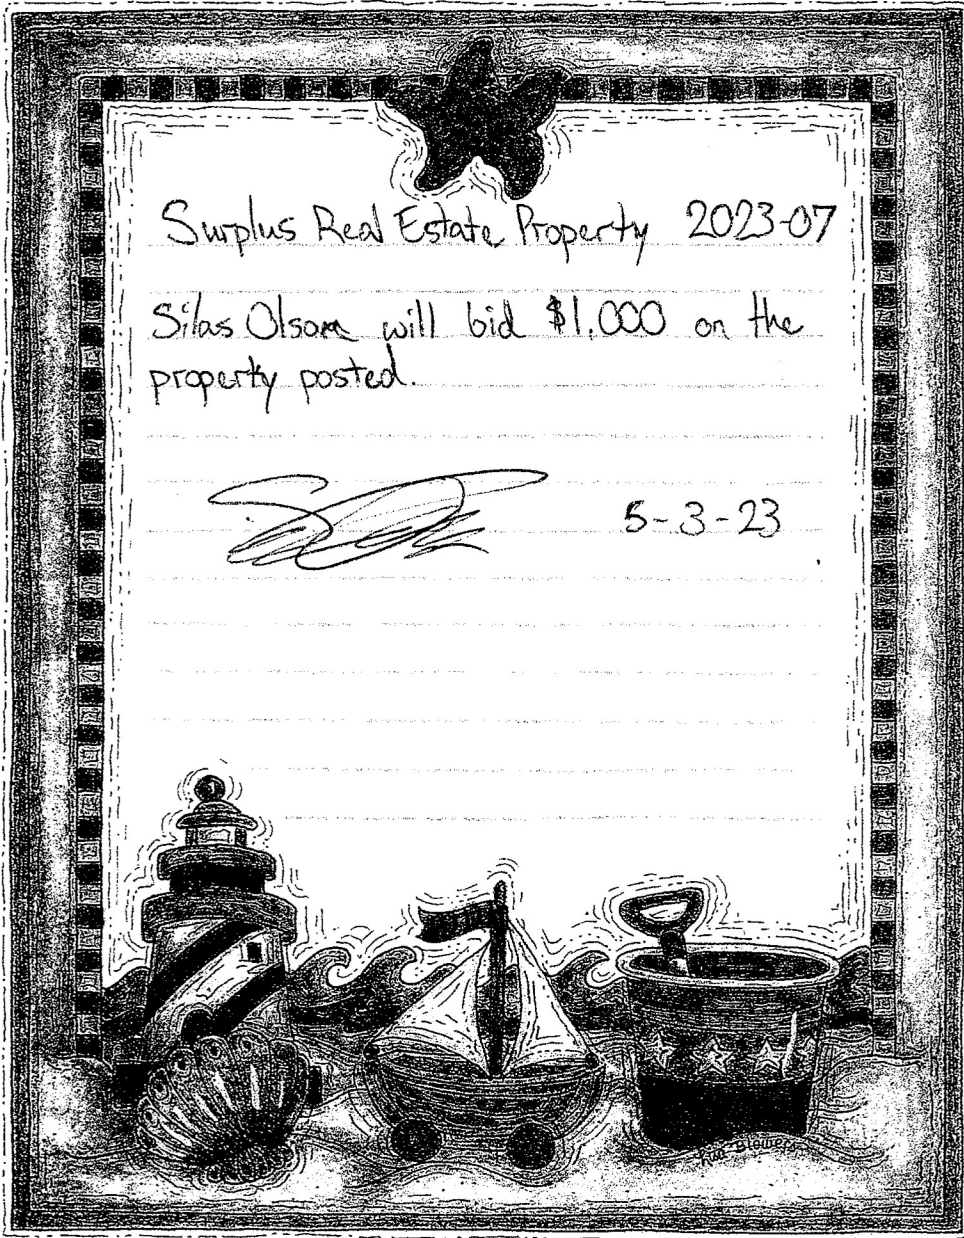 Surplus Real Estate Property 2023-07
Silas Olson will bid $1,000 on the
property posted.
5-3-23